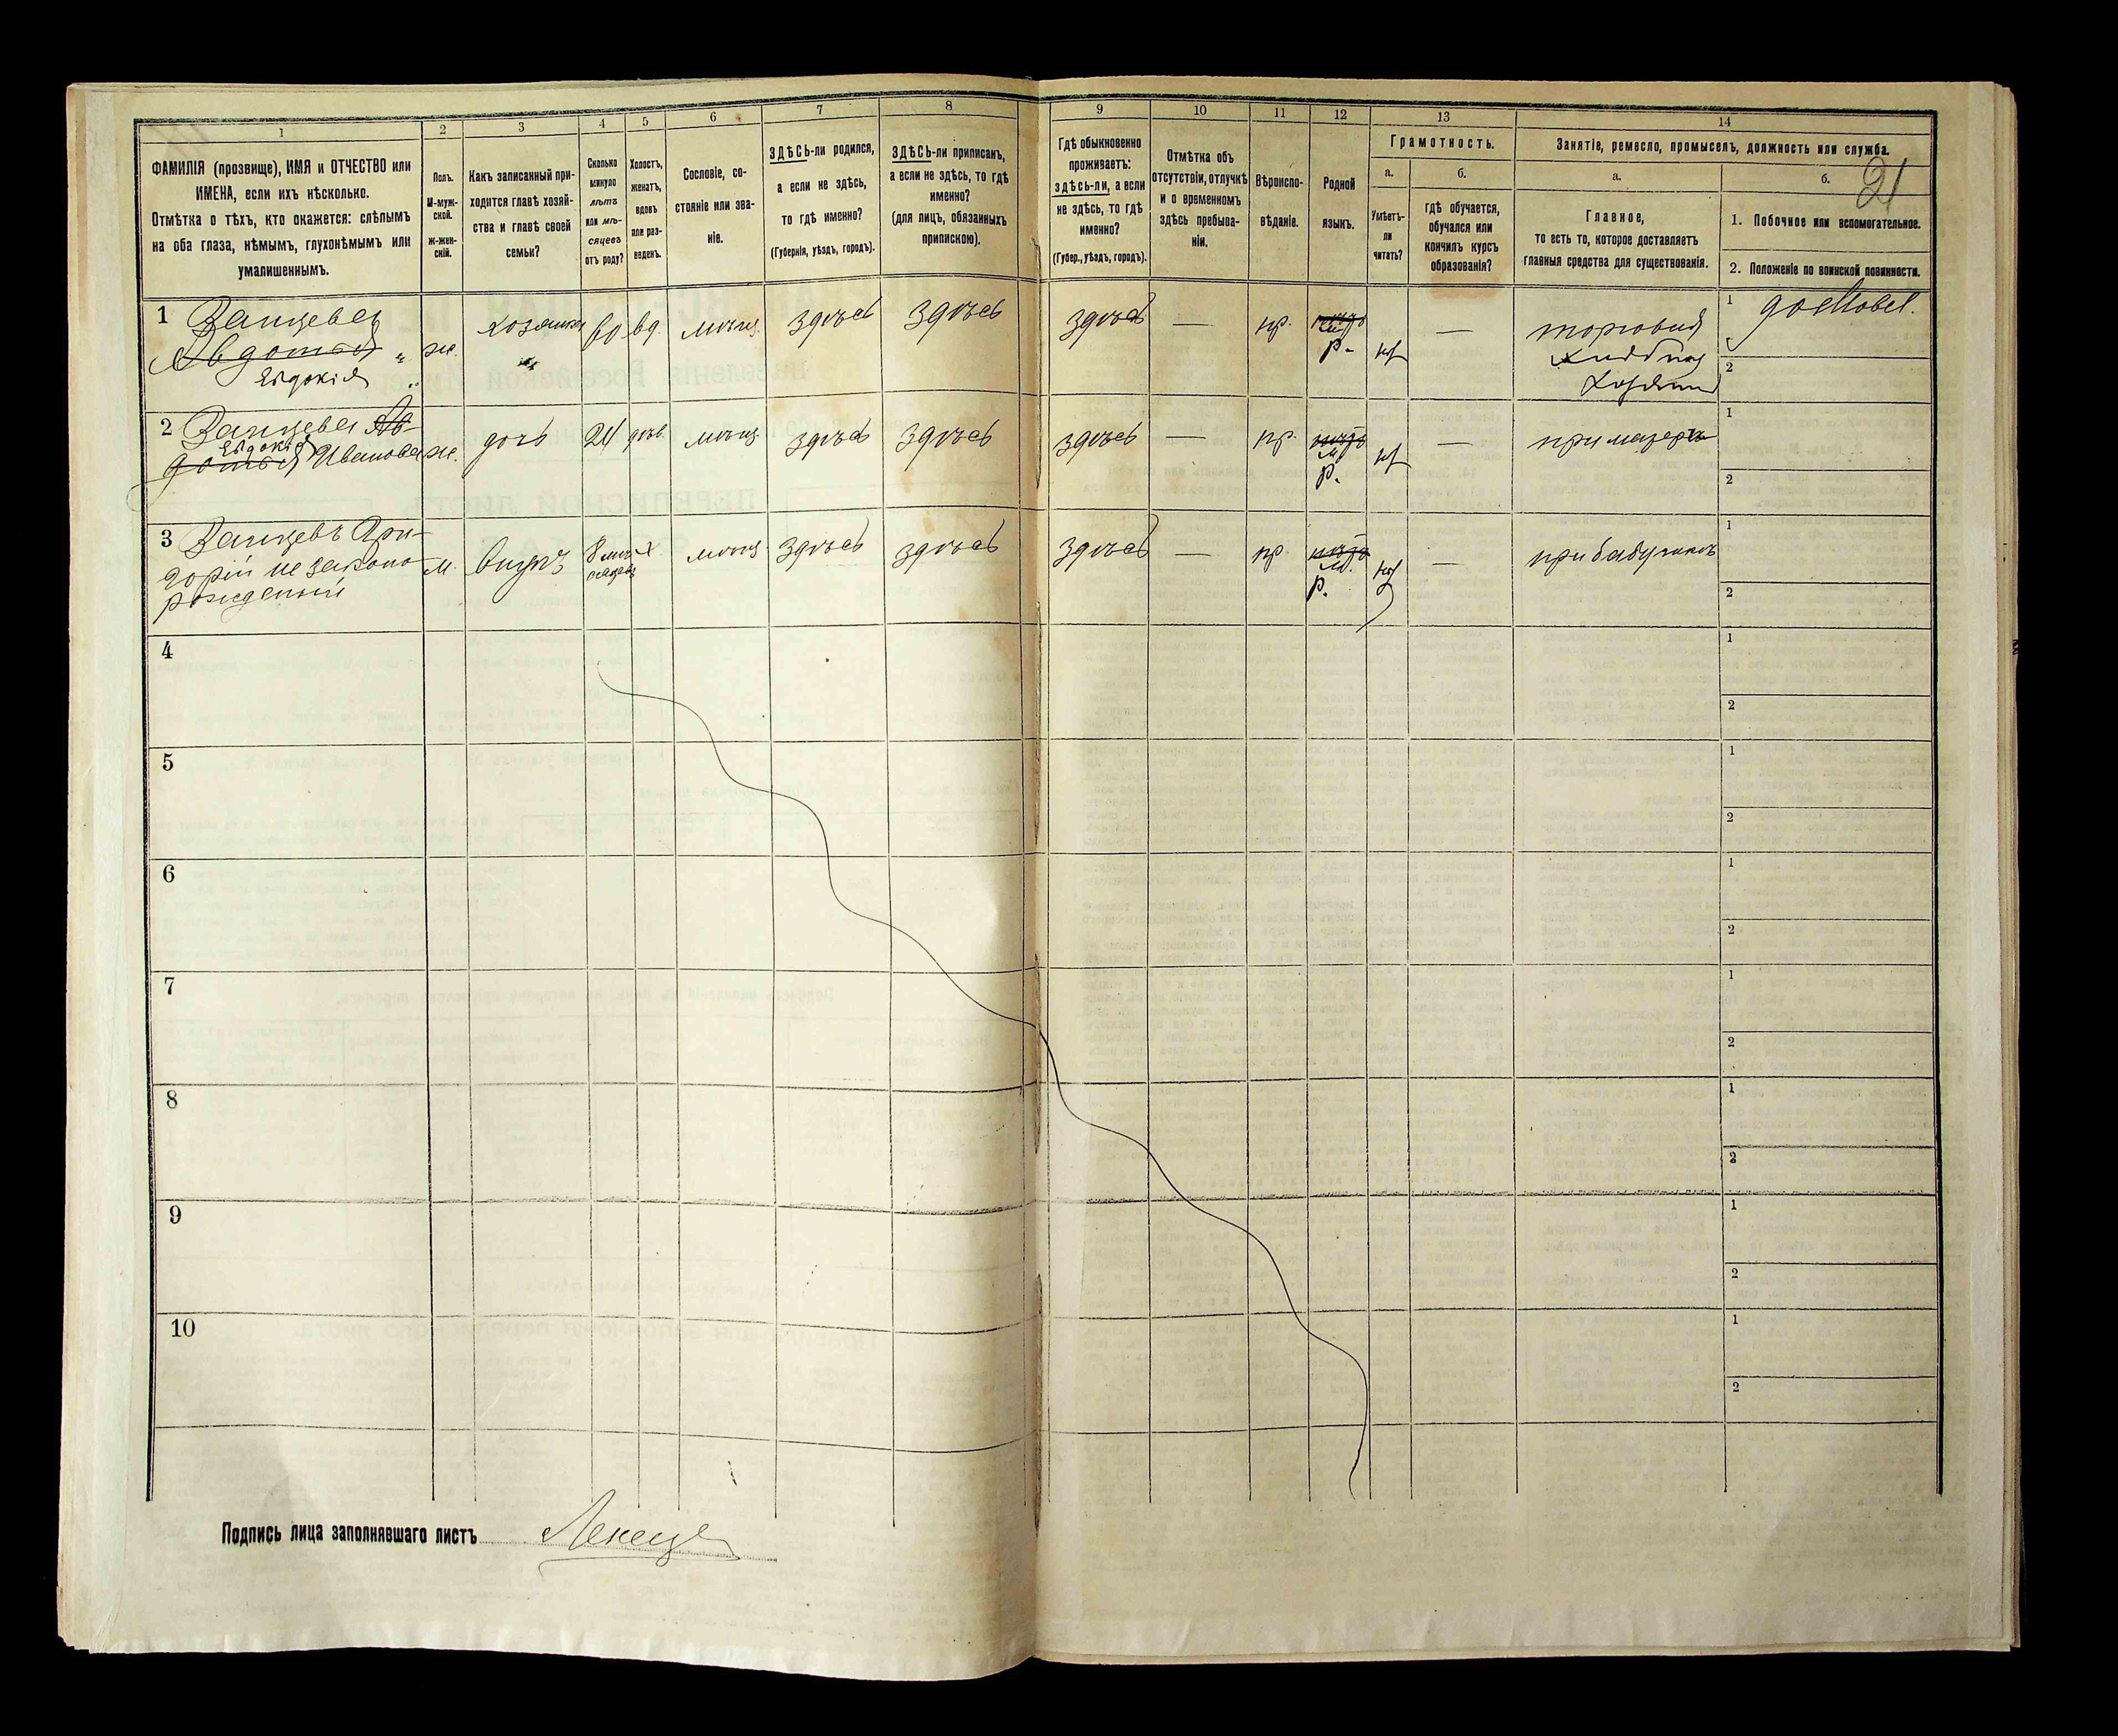 21
1
2
3
4
5
6
7
8
9
10
11
12
13
14
ФАМИЛІЯ (прозвище), ИМЯ и ОТЧЕСТВО или
ИМЕНА, если ихъ нѣсколько.
Отмѣтка о тѣхъ, кто окажется: слѣпымъ
на оба глаза, нѣмымъ, глухонѣмымъ или
умалишеннымъ.
Полъ.
М-муж-
ской.
Ж-жен-
скій.
Какъ записанный при-
ходится главѣ хозяй-
ства и главѣ своей
семьи?
Сколько
минуло
лѣтъ
или мѣ-
сяцевъ
отъ роду?
Холостъ,
женатъ,
вдовъ
или раз-
веденъ.
Сословіе, со-
стояніе или зва-
ніе.
ЗДѢСЬ-ли родился,
а если не здѣсь,
то гдѣ именно?
(Губернія, уѣздъ, городъ).
ЗДѢСЬ-ли приписанъ,
а если не здѣсь, то гдѣ
именно?
(для лицъ, обязанныхъ
припискою).
Гдѣ обыкновенно
проживаетъ:
здѣсь-ли, а если
не здѣсь, то гдѣ
именно?
(Губер., уѣздъ, городъ).
Отмѣтка объ
отсутствіи, отлучкѣ
и о временномъ
здѣсь пребыва-
ніи.
Вѣроиспо-
вѣданіе.
Родной
языкъ.
Грамотность.
а.
Умѣетъ-
ли
читать?
б.
гдѣ обучается,
обучался или
кончилъ курсъ
образованія?
Занятіе, ремесло, промыселъ, должность или служба.
а.
Главное,
то есть то, которое доставляетъ
главныя средства для существованія.
б.
1. Побочное или вспомогательное.
2. Положеніе по воинской повинности.
1 Занцева
Авдотья
Евдокія
ж.
хозяйка
60
вд.
мѣщ.
здѣсь
здѣсь
здѣсь
—
пр.
р.
—
торговля
1
2
2 Занцева Ав-
Евдокія
дотья Иванова
ж.
дочь
24
дѣв.
мѣщ.
здѣсь
здѣсь
здѣсь
—
пр.
р.
—
при матерѣ
1
2
3 Занцевъ Гри-
горій не законо-
рожденый
м.
внукъ
8 мѣ-
сяцевъ
х
мѣщ.
здѣсь
здѣсь
здѣсь
—
пр.
р.
—
при бабушкѣ
1
2
4
1
2
5
1
2
6
1
2
7
1
2
8
1
2
9
1
2
10
1
2
Подпись лица заполнявшаго листъ